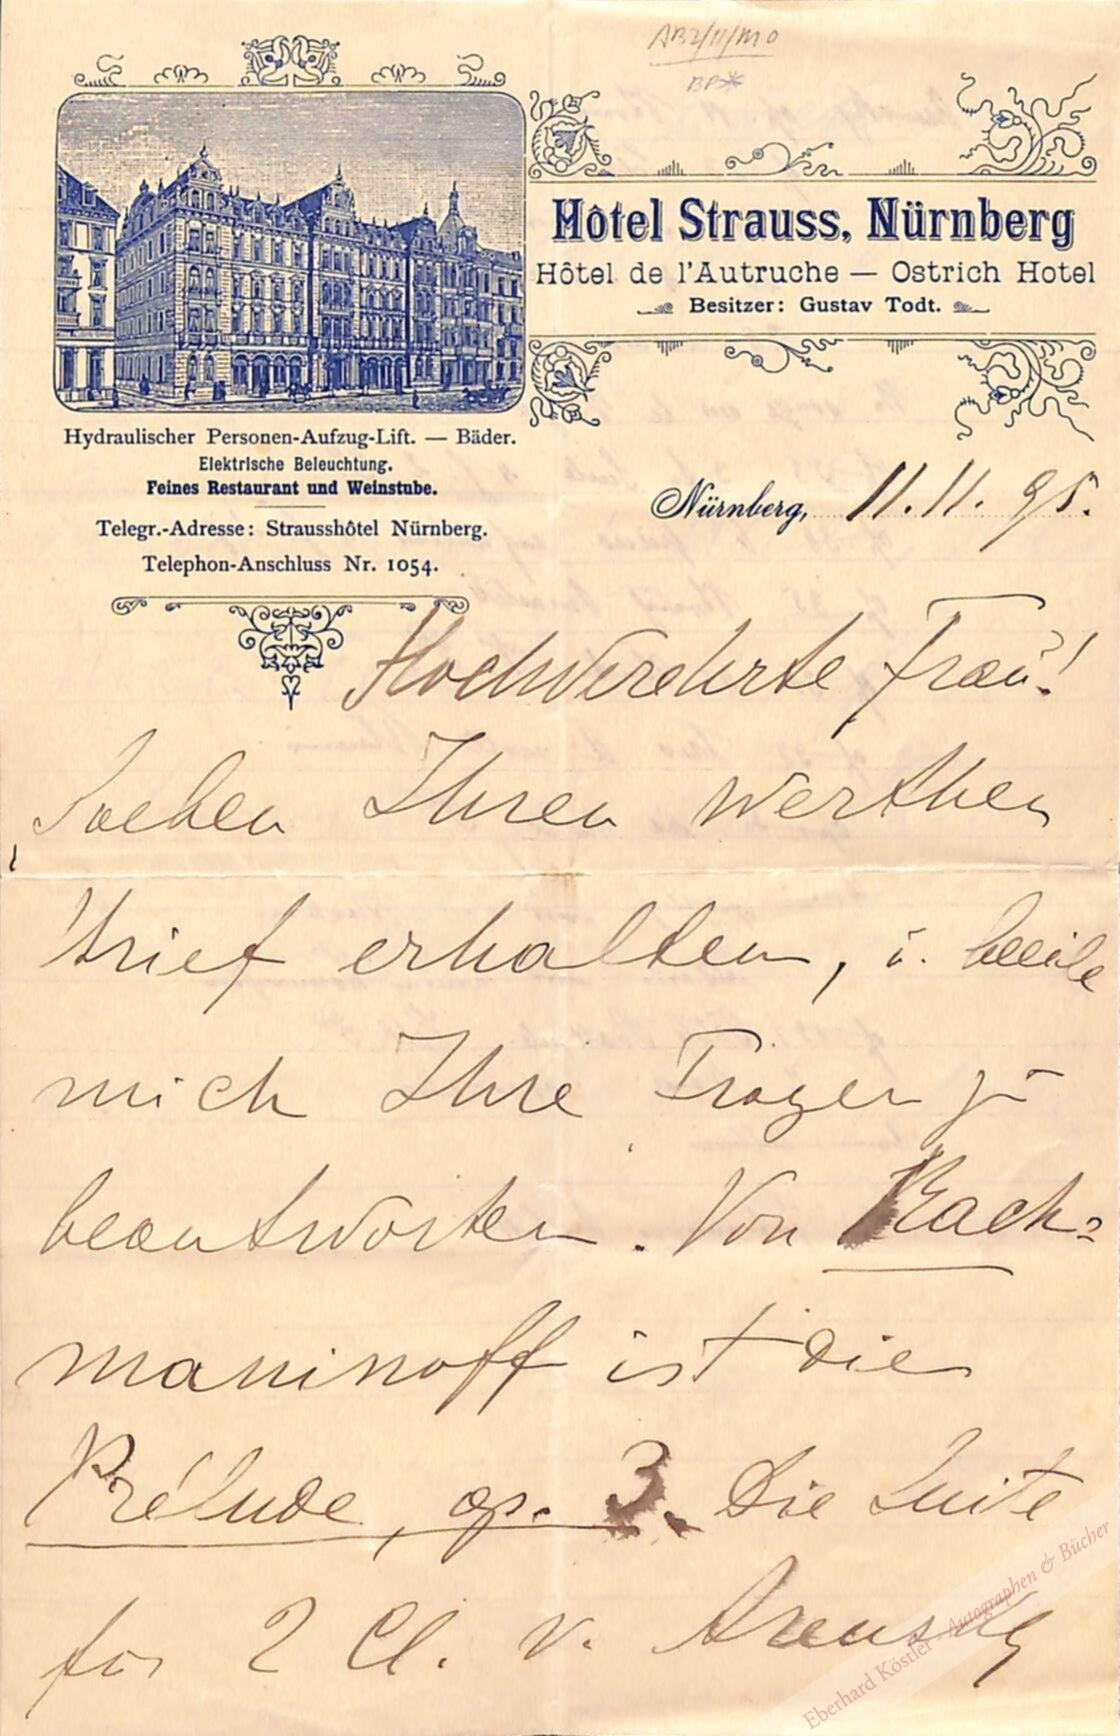 AB2/11/M0
BP*
Hôtel Strauss, Nürnberg
Hôtel de l'Autruche — Ostrich Hotel
Besitzer: Gustav Todt.
Hydraulischer Personen-Aufzug-Lift. — Bäder.
Elektrische Beleuchtung.
Feines Restaurant und Weinstube.
Telegr.-Adresse: Strausshôtel Nürnberg.
Telephon-Anschluss Nr. 1054.
Nürnberg, 11.11.95.
Hochverehrte Frau!
Soeben Ihren werthen
Brief erhalten, u. beeile
mich Ihre Fragen zu
beantworten. Von Rach=
maninoff ist die
Prélude, op. 3. Die Suite
für 2 Cl. v. Arensky
Eberhard Köstler - Autographen & Bücher